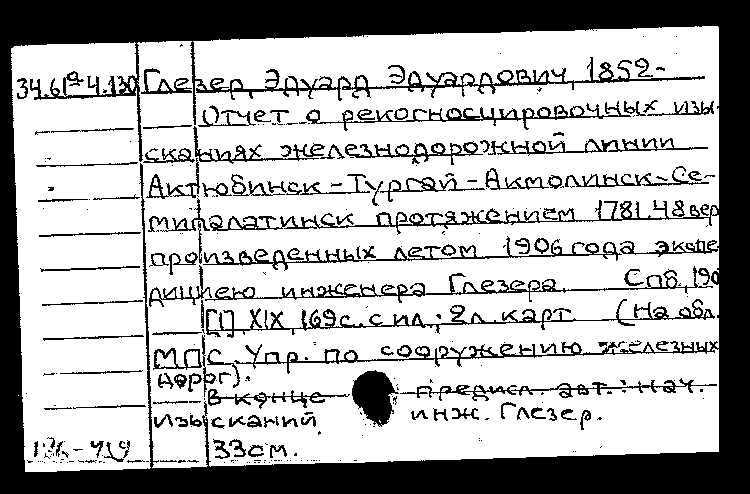 34.61а-4.130 Глезер, Эдуард Эдуардович, 1852-
Отчет о рекогносцировочных изы-
сканиях железнодорожной линии
Актюбинск-Тургай-Акмолинск-Се-
мипалатинск протяжением 1781.48 вер
произведенных летом 1906 года экспе
дициею инженера Глезера. Спб, 190
[1] XIX, 169 с. с ил.; 2 л. карт (На обл.
МПС. Упр. по сооружению железных
дорог).
В конце предисл. авт.: нач.
изысканий инж. Глезер.
33 см.